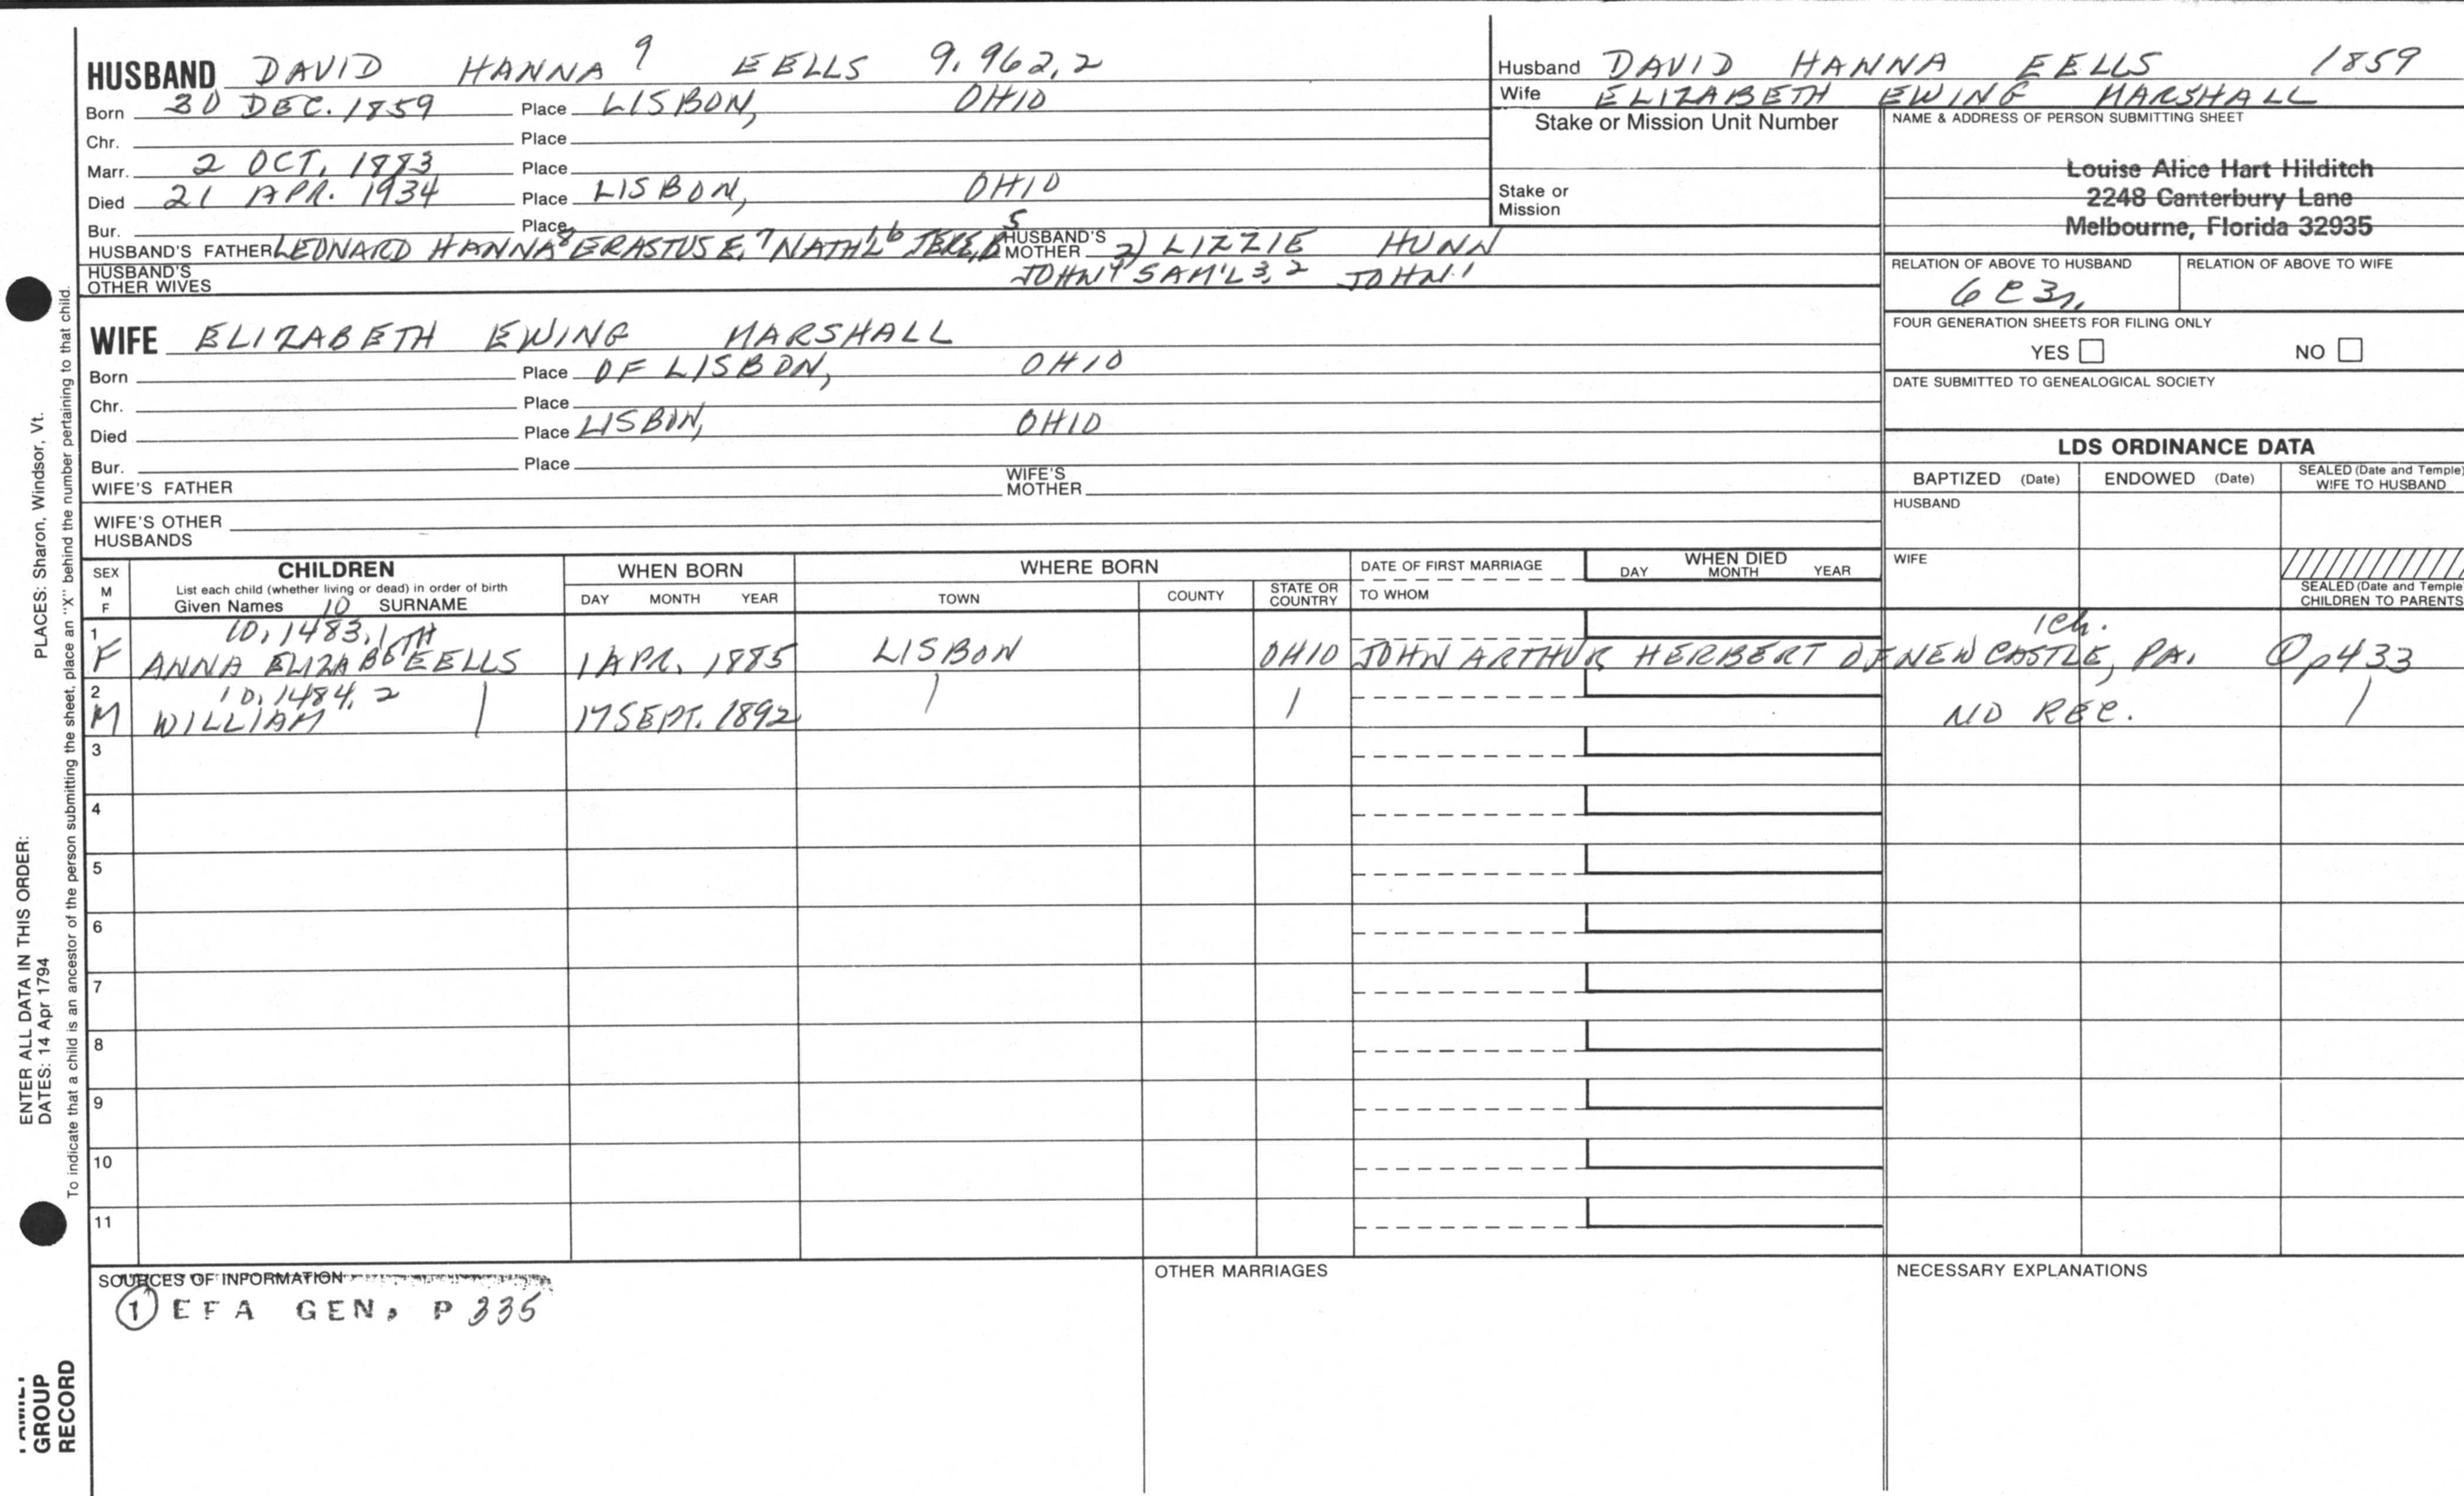 HUSBAND DAVID HANNA 9 EELLS 9.962,2
Born 30 DEC. 1859 Place LISBON, OHIO
Chr. Place
Marr. 2 OCT, 1883 Place
Died 21 APR. 1934 Place LISBON, OHIO
Bur. Place
HUSBAND'S FATHER LEONARD HANNA 8 ERASTUS E. 7 NATH'L 6 JERE, 5 HUSBAND'S MOTHER 2) LIZZIE HUNN
HUSBAND'S OTHER WIVES JOHN 4 SAM'L 3, 2 JOHN 1
Husband DAVID HANNA EELLS 1859
Wife ELIZABETH EWING MARSHALL
Stake or Mission Unit Number
Stake or Mission
NAME & ADDRESS OF PERSON SUBMITTING SHEET
Louise Alice Hart Hilditch
2248 Canterbury Lane
Melbourne, Florida 32935
RELATION OF ABOVE TO HUSBAND
6C3r,
RELATION OF ABOVE TO WIFE
FOUR GENERATION SHEETS FOR FILING ONLY
YES NO
DATE SUBMITTED TO GENEALOGICAL SOCIETY
WIFE ELIZABETH EWING MARSHALL
Born Place OF LISBON, OHIO
Chr. Place
Died Place LISBON, OHIO
Bur. Place
WIFE'S FATHER WIFE'S MOTHER
WIFE'S OTHER HUSBANDS
LDS ORDINANCE DATA
BAPTIZED (Date) ENDOWED (Date) SEALED (Date and Temple) WIFE TO HUSBAND
HUSBAND
WIFE
SEALED (Date and Temple CHILDREN TO PARENTS
SEX M F
CHILDREN
List each child (whether living or dead) in order of birth
Given Names 10 SURNAME
WHEN BORN
DAY MONTH YEAR
WHERE BORN
TOWN COUNTY STATE OR COUNTRY
DATE OF FIRST MARRIAGE
TO WHOM
WHEN DIED
DAY MONTH YEAR
1 10,1483,1 1ch.
F ANNA ELIZABETH EELLS 1 APR. 1885 LISBON OHIO JOHN ARTHUR HERBERT OF NEW CASTLE, PA. ① p433
2 10,1484,2
M WILLIAM | 17 SEPT. 1892 | | NO REC. |
3
4
5
6
7
8
9
10
11
SOURCES OF INFORMATION
① EFA GEN, P 335
OTHER MARRIAGES
NECESSARY EXPLANATIONS
PLACES: Sharon, Windsor, Vt.
ENTER ALL DATA IN THIS ORDER:
DATES: 14 Apr 1794
To indicate that a child is an ancestor of the person submitting the sheet, place an "X" behind the number pertaining to that child.
FAMILY
GROUP
RECORD